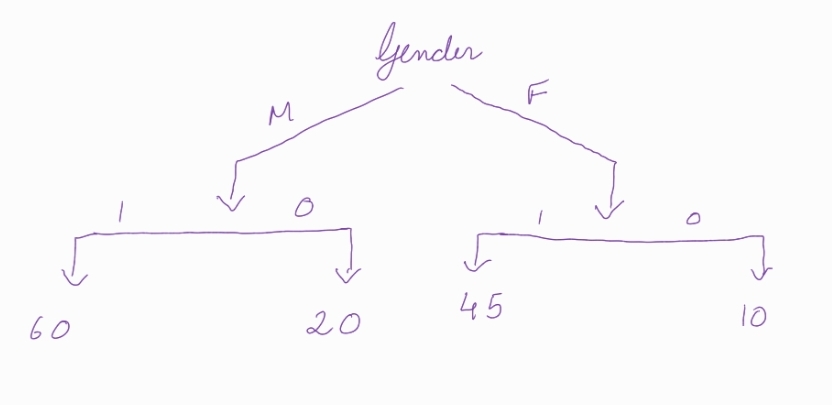 Gender
M F
1 0 1 0
60 20 45 10